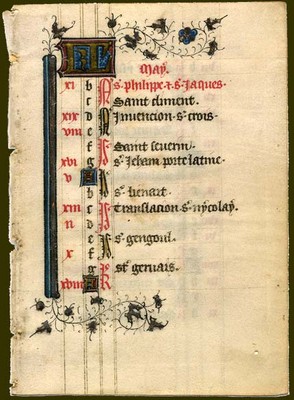 KL
May.
xi b N s. philippe. z. s. Jaques.
c N Saint climent.
xix d N Jnvencion. s. crois.
viii e
f N Saint seuerin.
xvi g N s. Jeham porte latine.
v A
b N s. lienart.
xiii c Translacion. s. nycolay.
ii d
e N s. gengoul.
x f
g N st. geruais.
xviii A